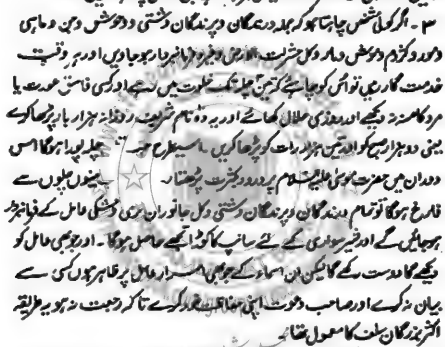 ۳ - اگر کوئی شخص چاہتا ہو کہ جملہ درندگان و پرندگان دشتی و وحوش و جن و ماہی
و مور و کژدم و و مار و کل حشرات الارض وغیرہ فرمانبردار ہو جاویں اور ہر وقت
خدمت گار رہیں تو اُس کو چاہئے کہ تین چلہ تک خلوت میں رہے اور کسی فاسق عورت یا
مرد کا منہ نہ دیکھے اور روزی حلال کھائے اور یہ دو نام شریف روزانہ ہزار بار پڑھا کرے
یعنی دو ہزار صبح کو اور تین ہزار رات کو پڑھا کریں۔ اسی طرح جب چلہ پورا ہوگا اس
دوران میں حضرت موسیٰ علیہ السلام پر درود بکثرت پڑھتا۔ تینوں چلوں سے
فارغ ہوگا تو تمام درندگان و پرندگان دشتی و کل جانوران تری و خشکی عامل کے فرمانبردار
ہو جائیں گے اور شیر سواری کے لئے سانپ کا کوڑا اسے حاصل ہوگا۔ اور جو بھی عامل کو
دیکھے گا دوست رکھے گا لیکن ان اسماء کے جو بھی اسرار عامل پر ظاہر ہوں کسی سے
بیان نہ کرے اور صاحب دعوت اپنی حفاظت ضرور کرے تاکہ رجعت نہ ہو یہ طریقہ
اکثر بزرگان سلف کا معمول تھا۔